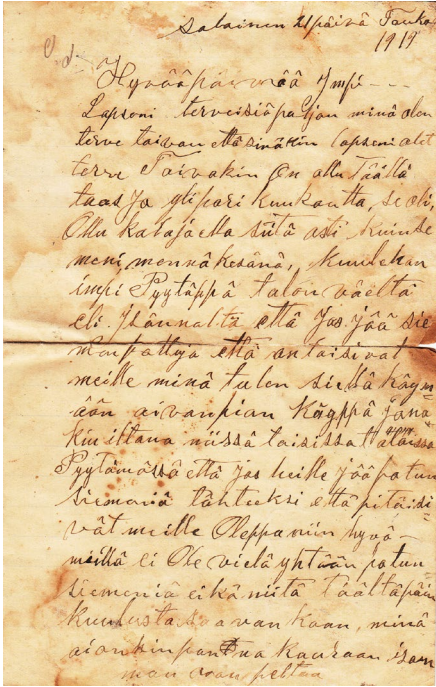 Salainen 21 päivä Touko
1919
Hyvää päivää Impi
Lapseni terveisiä paljon minä olen
terve toivon että sinäkin lapseni olet
terve Toivakin on ollu Täällä
taas jo yli pari kuukautta, se oli,
Ollu katajaella siitä asti kuinse
meni, mennä kesänä, kuulehan
impi Pyytäppä talon väeltä
eli Isännältä että Jos Jää sie
menpottuja että antaisivat
meille minä tulen sieltä käym
ään aivanpian Käyppä jona
kin iltana niissä toisissa taloissa
Pyytämässä että jos heille jääpotun
siemeniä tähteeksi että pitäisi
vät meille Oleppa niin hyvä
meillä ei Ole vielä yhtään potun
siemeniä eikä niitä täältäpäin
kuulusta saavan kaan, minä
aionkin panna kaukaan ison
man peltoa